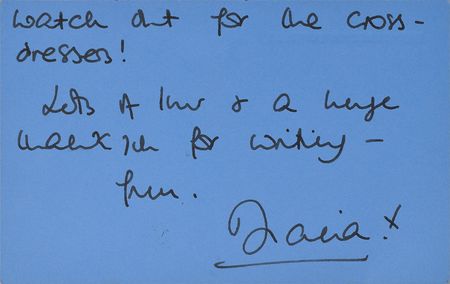 watch out for the cross-
dressers!
Lots of love & a huge
thank you for writing –
from.
Diana. x